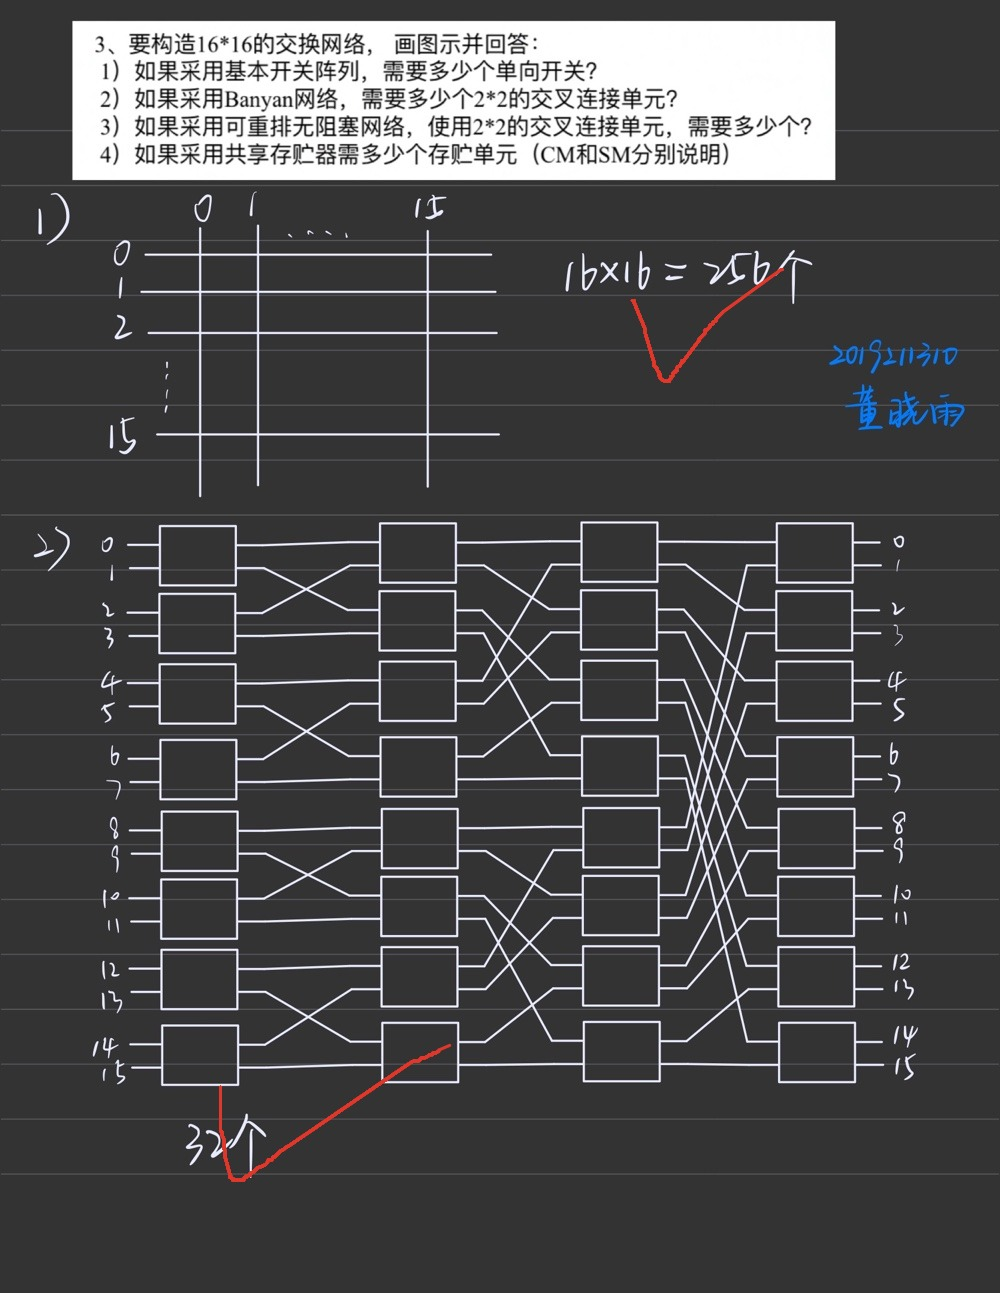 3、要构造16*16的交换网络， 画图示并回答：
1）如果采用基本开关阵列，需要多少个单向开关？
2）如果采用Banyan网络，需要多少个2*2的交叉连接单元？
3）如果采用可重排无阻塞网络，使用2*2的交叉连接单元，需要多少个？
4）如果采用共享存贮器需多少个存贮单元（CM和SM分别说明）
1)
0 1 .... 15
0
1
2
15
16×16 = 256个
2019211310
董晓雨
2)
0 0
1 1
2 2
3 3
4 4
5 5
6 6
7 7
8 8
9 9
10 10
11 11
12 12
13 13
14 14
15 15
32个